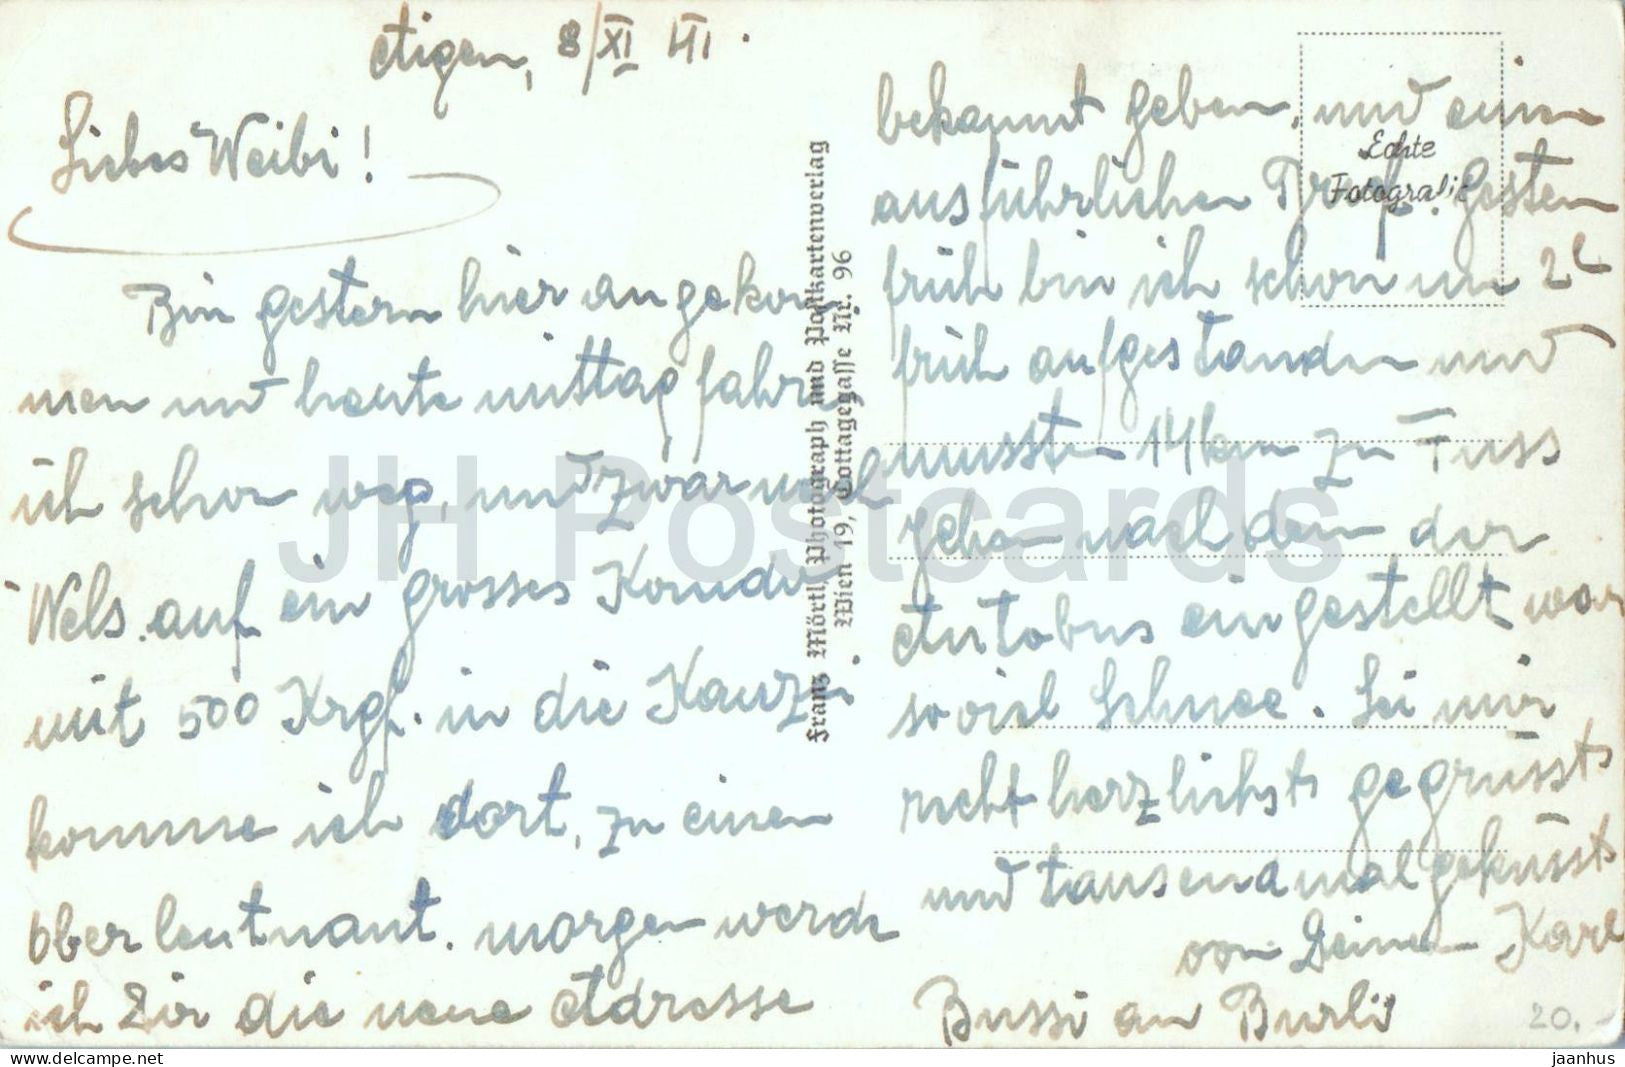 Aigen, 8/XI 41.
Liebes Weibi!
Bin gestern hier angekom
men und heute mittag fahre
ich schon weg, und zwar nach
Wels. auf ein grosses Komdo
mit 500 Krgf. in die Kanzlei
komme ich dort, zu einen
Oberleutnant. morgen werde
ich Dir die neue Adresse
bekannt geben, und einen
ausführlichen Brief. Gestern
früh bin ich schon um 2h
früh aufgestanden und
musste 14 km zu Fuss
gehen nach dem der
Autobus eingestellt war
soviel Schnee. Sei mir
recht herzlichst gegrüsst
und tausendmal geküsst
von Deinen Karl
Bussi an Burli
Echte
Fotografie
Franz Mörtl, Photograph und Postkartenverlag
Wien 19, Cottagegasse Nr. 96
JH Postcards
20.-
https://www.delcampe.net
jaanhus